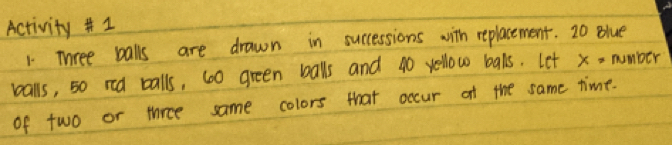 Activity # 1
1. Three balls are drawn in successions with replacement. 20 Blue
balls, 50 red balls, 60 green balls and 40 yellow balls. Let x = number
of two or three same colors that occur at the same time.